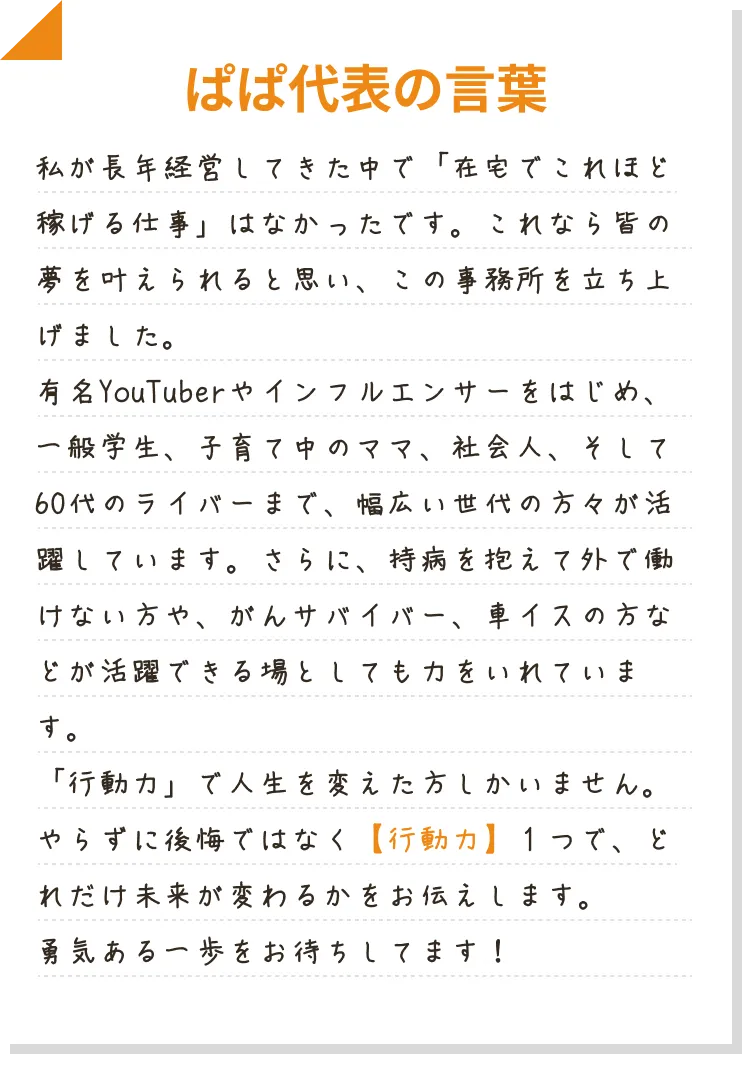 ぱぱ代表の言葉
私が長年経営してきた中で「在宅でこれほど
稼げる仕事」はなかったです。これなら皆の
夢を叶えられると思い、この事務所を立ち上
げました。
有名YouTuberやインフルエンサーをはじめ、
一般学生、子育て中のママ、社会人、そして
60代のライバーまで、幅広い世代の方々が活
躍しています。さらに、持病を抱えて外で働
けない方や、がんサバイバー、車イスの方な
どが活躍できる場としても力をいれていま
す。
「行動力」で人生を変えた方しかいません。
やらずに後悔ではなく【行動力】１つで、ど
れだけ未来が変わるかをお伝えします。
勇気ある一歩をお待ちしてます！